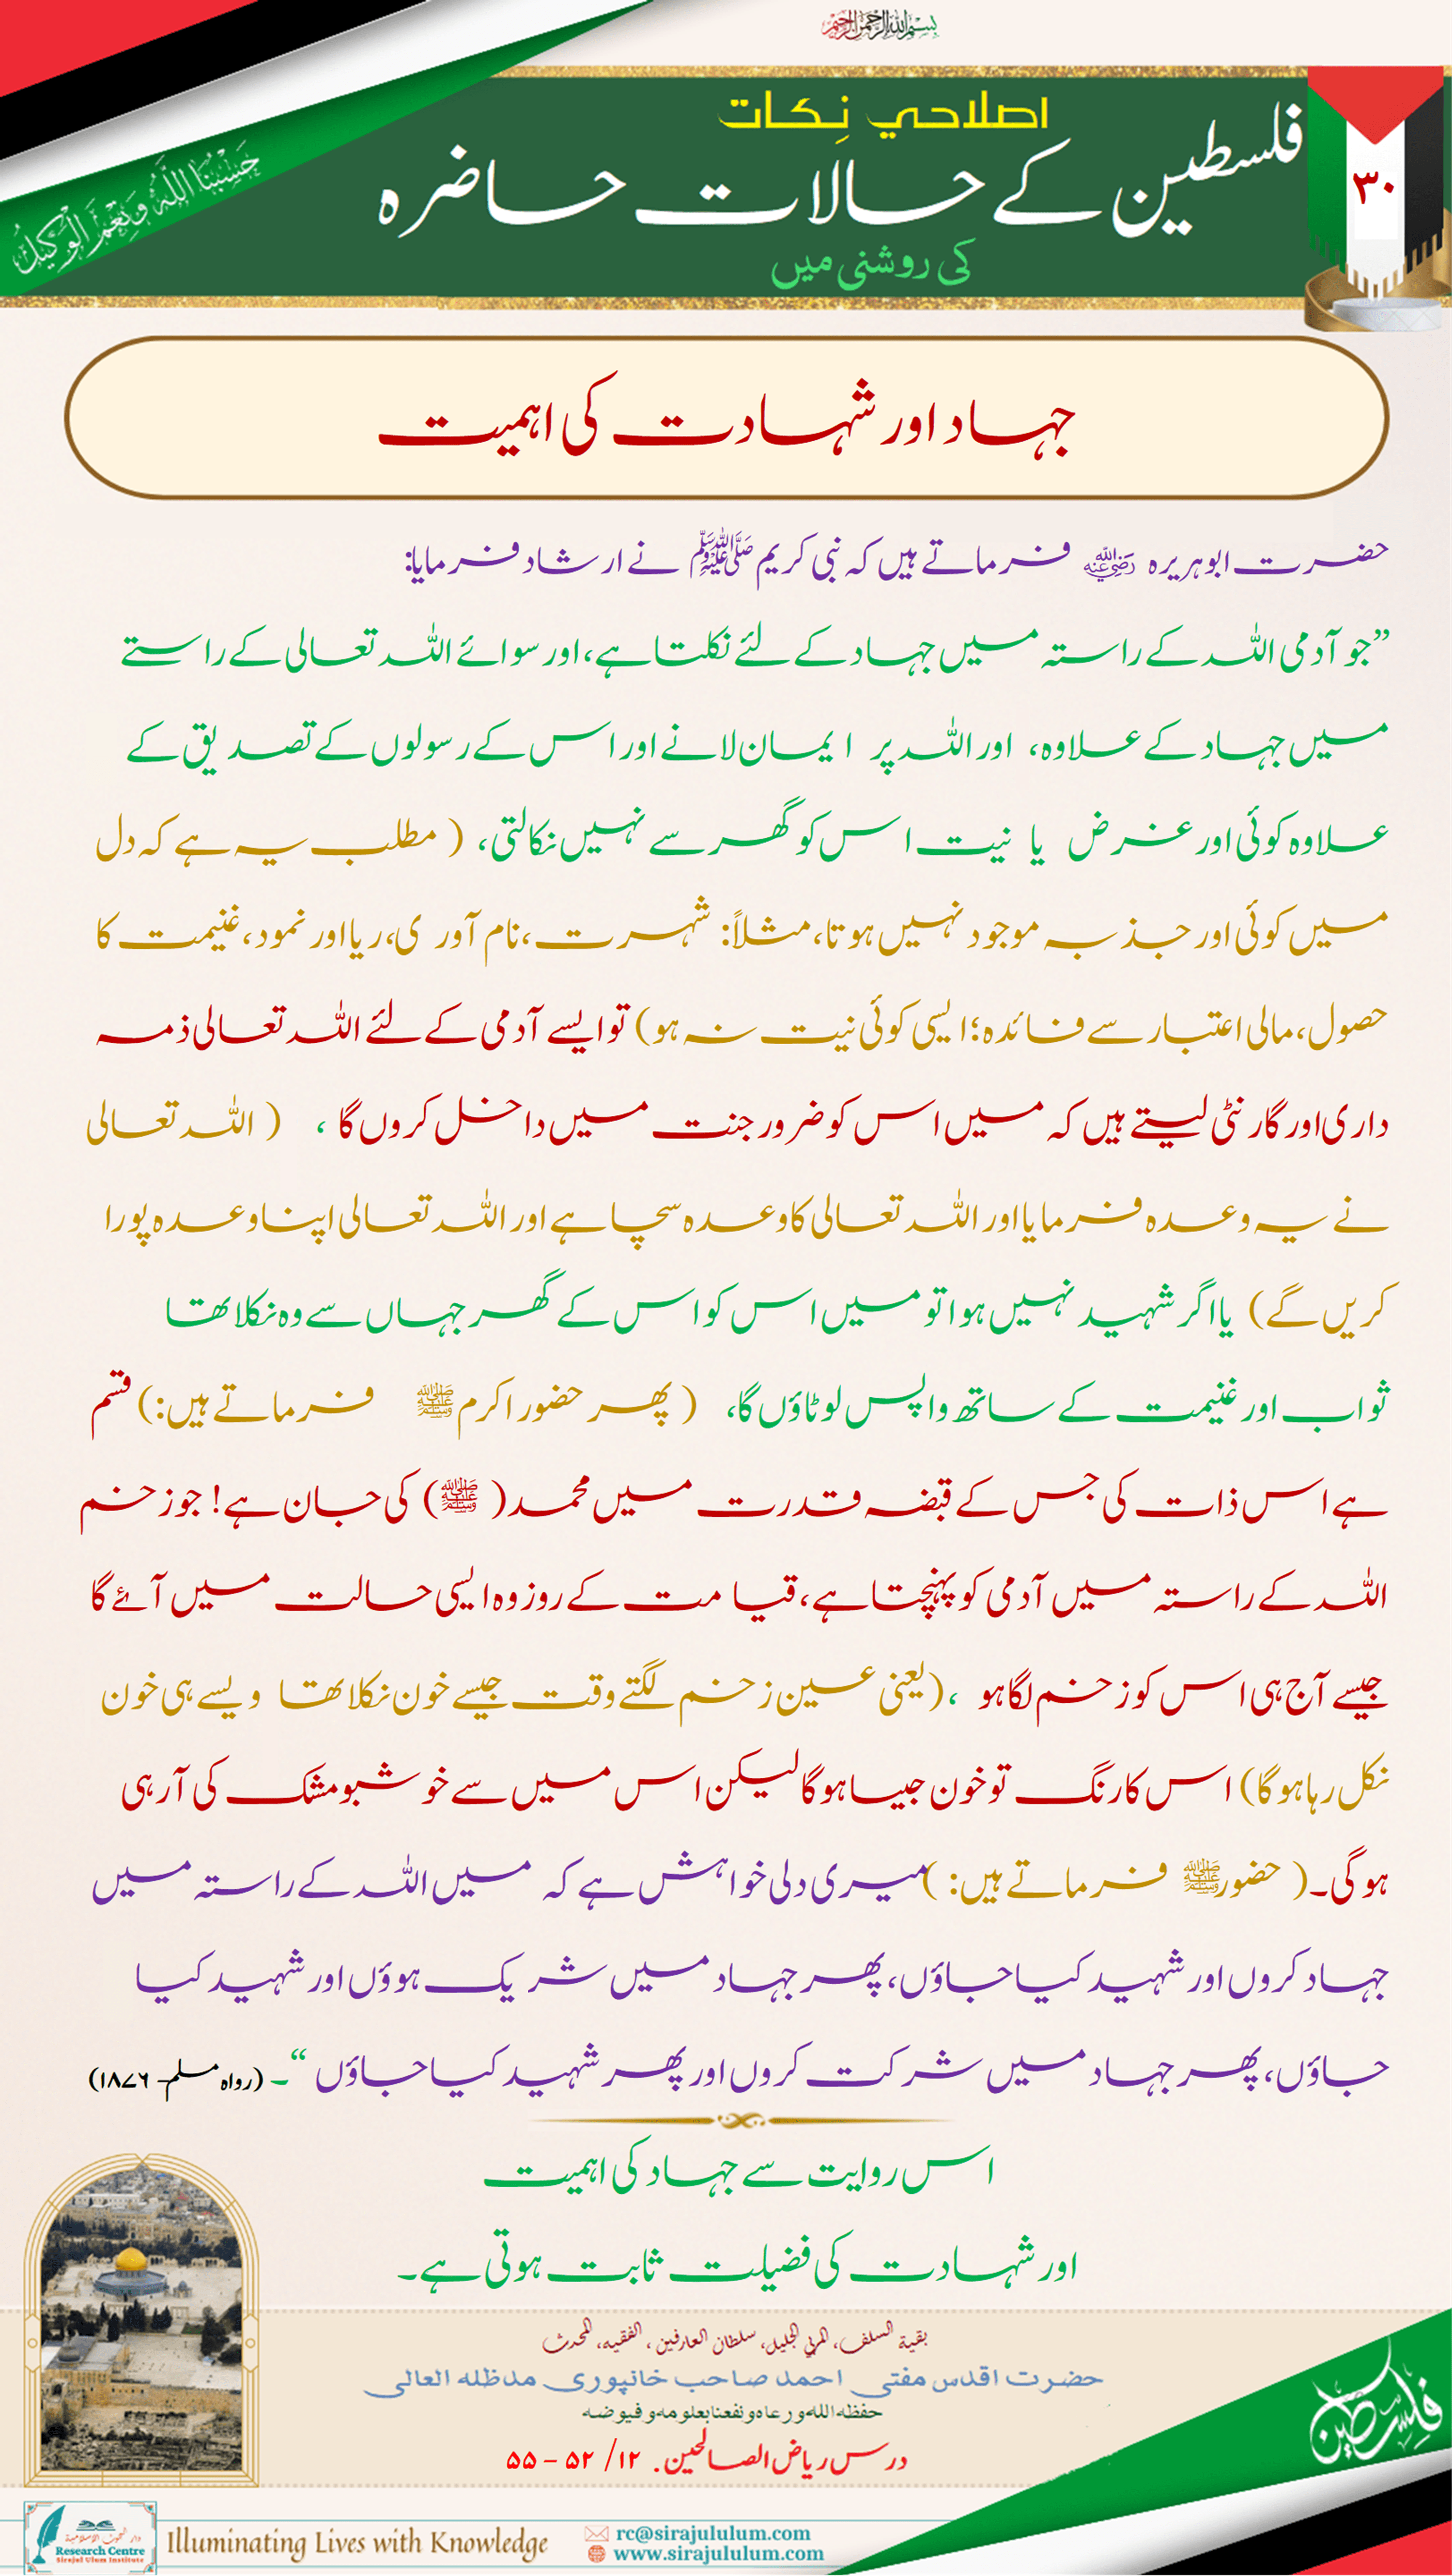 بسم الله الرحمن الرحيم
اصلاحي نِكات
فلسطین کے حالات حاضرہ
کی روشنی میں
۳۰
حَسْبُنَا اللَّهُ وَنِعْمَ الْوَكِيلُ
جہاد اور شہادت کی اہمیت
حضرت ابوہریرہ رضی اللہ عنہ فرماتے ہیں کہ نبی کریم ﷺ نے ارشاد فرمایا:
”جو آدمی اللہ کے راستہ میں جہاد کے لئے نکلتا ہے، اور سوائے اللہ تعالی کے راستے
میں جہاد کے علاوہ، اور اللہ پر ایمان لانے اور اس کے رسولوں کے تصدیق کے
علاوہ کوئی اور غرض یا نیت اس کو گھر سے نہیں نکالتی، ( مطلب یہ ہے کہ دل
میں کوئی اور جذبہ موجود نہیں ہوتا، مثلاً: شہرت، نام آوری، ریا اور نمود، غنیمت کا
حصول، مالی اعتبار سے فائدہ؛ ایسی کوئی نیت نہ ہو) تو ایسے آدمی کے لئے اللہ تعالی ذمہ
داری اور گارنٹی لیتے ہیں کہ میں اس کو ضرور جنت میں داخل کروں گا ، ( اللہ تعالی
نے یہ وعدہ فرمایا اور اللہ تعالی کا وعدہ سچا ہے اور اللہ تعالی اپنا وعدہ پورا
کریں گے) یا اگر شہید نہیں ہوا تو میں اس کو اس کے گھر جہاں سے وہ نکلا تھا
ثواب اور غنیمت کے ساتھ واپس لوٹاؤں گا، ( پھر حضور اکرم ﷺ فرماتے ہیں:) قسم
ہے اس ذات کی جس کے قبضہ قدرت میں محمد( ﷺ) کی جان ہے! جو زخم
اللہ کے راستہ میں آدمی کو پہنچتا ہے، قیامت کے روز وہ ایسی حالت میں آئے گا
جیسے آج ہی اس کو زخم لگا ہو ، (یعنی عین زخم لگتے وقت جیسے خون نکلا تھا ویسے ہی خون
نکل رہا ہوگا) اس کا رنگ تو خون جیسا ہوگا لیکن اس میں سے خوشبو مشک کی آرہی
ہوگی۔( حضور ﷺ فرماتے ہیں: ) میری دلی خواہش ہے کہ میں اللہ کے راستہ میں
جہاد کروں اور شہید کیا جاؤں، پھر جہاد میں شریک ہوؤں اور شہید کیا
جاؤں، پھر جہاد میں شرکت کروں اور پھر شہید کیا جاؤں “۔ (رواہ مسلم- ۱۸۷۶)
اس روایت سے جہاد کی اہمیت
اور شہادت کی فضیلت ثابت ہوتی ہے۔
بقیة السلف، المربي الجلیل، سلطان العارفین، الفقیه، المحدث
حضرت اقدس مفتی احمد صاحب خانپوری مدظلہ العالی
حفظہ اللہ ورعاہ ونفعنا بعلومہ وفیوضہ
درس ریاض الصالحین. ۱۲/ ۵۲ – ۵۵
فلسطين
دار البحوث الإسلامية
Research Centre
Sirajul Ulum Institute
Illuminating Lives with Knowledge
rc@sirajululum.com
www.sirajululum.com